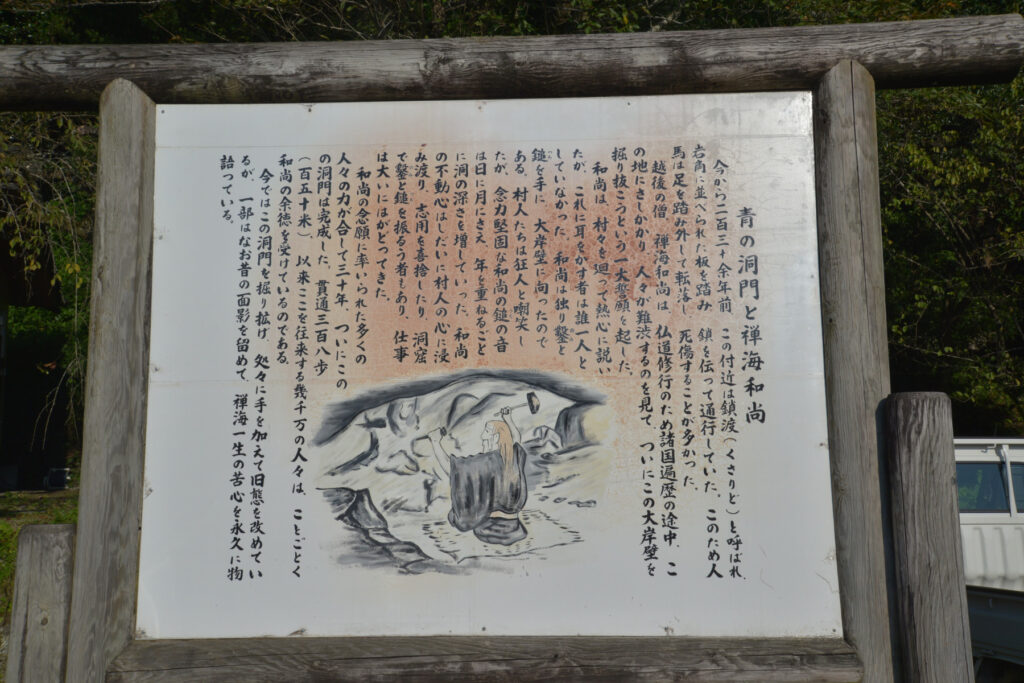 青の洞門と禅海和尚
今から二百三十余年前 この付近は鎖渡(くさりど)と呼ばれ、
岩角に並べられた板を踏み 鎖を伝って通行していた。このため人
馬は足を踏み外して転落し 死傷することが多かった。
越後の僧 禅海和尚は、仏道修行のため諸国遍歴の途中、こ
の地にさしかかり、人々が難渋するのを見て、ついにこの大岸壁を
掘り抜こうという一大誓願を起した。
和尚は、村々を廻って熱心に説い
たが、これに耳をかす者は誰一人と
していなかった。和尚は独り鑿と
鎚を手に 大岸壁に向ったので
ある。村人たちは狂人と嘲笑し
たが、念力堅固な和尚の鎚の音
は日に月にさえ 年を重ねるごと
に洞の深さを増していった。和尚
の不動心はしだいに村人の心に浸
み渡り、志用を喜捨したり、洞窟
で鑿と鎚を振るう者もあり、仕事
は大いにはがとってきた。
和尚の念願に率いられた多くの
人々の力が合して三十年、ついにこの
の洞門は完成した。貫通三百八歩
(百五十米)、以来ここを往来する幾千万の人々は、ことごとく
和尚の余徳を受けているのである。
今ではこの洞門を掘り拡げ、処々に手を加えて旧態を改めてい
るが、一部はなお昔の面影を留めて、禅海一生の苦心を永久に物
語っている。